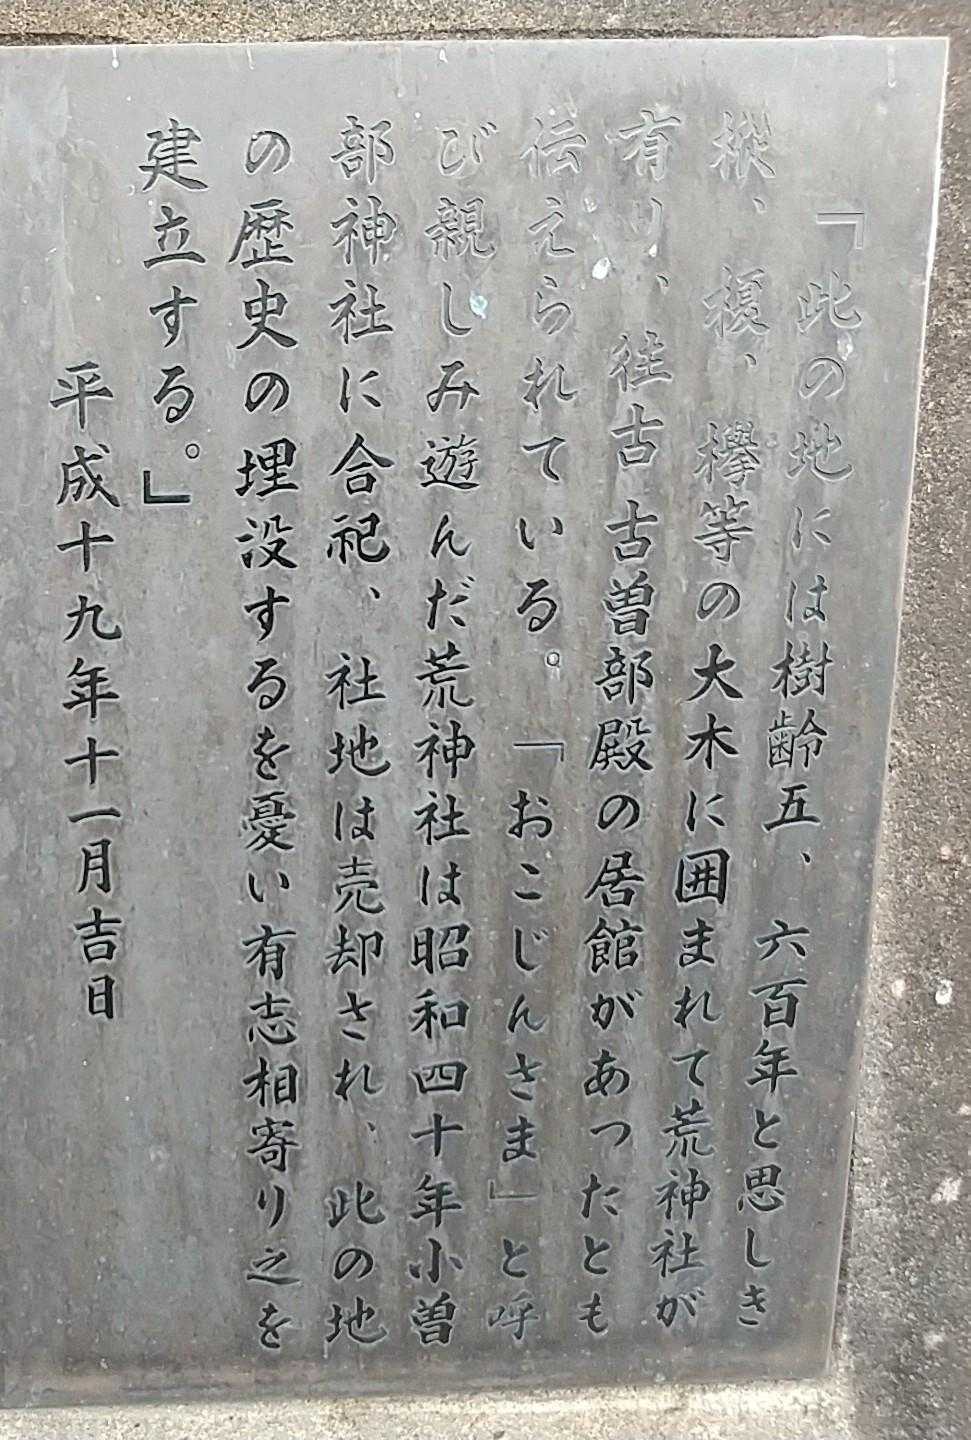 「此の地には樹齢五、六百年と思しき
樅、榎、欅等の大木に囲まれて荒神社が
有り、往古古曽部殿の居館があったとも
伝えられている。「おこじんさま」と呼
び親しみ遊んだ荒神社は昭和四十年小曽
部神社に合祀、社地は売却され、此の地
の歴史の埋没するを憂い有志相寄り之を
建立する。」
平成十九年十一月吉日